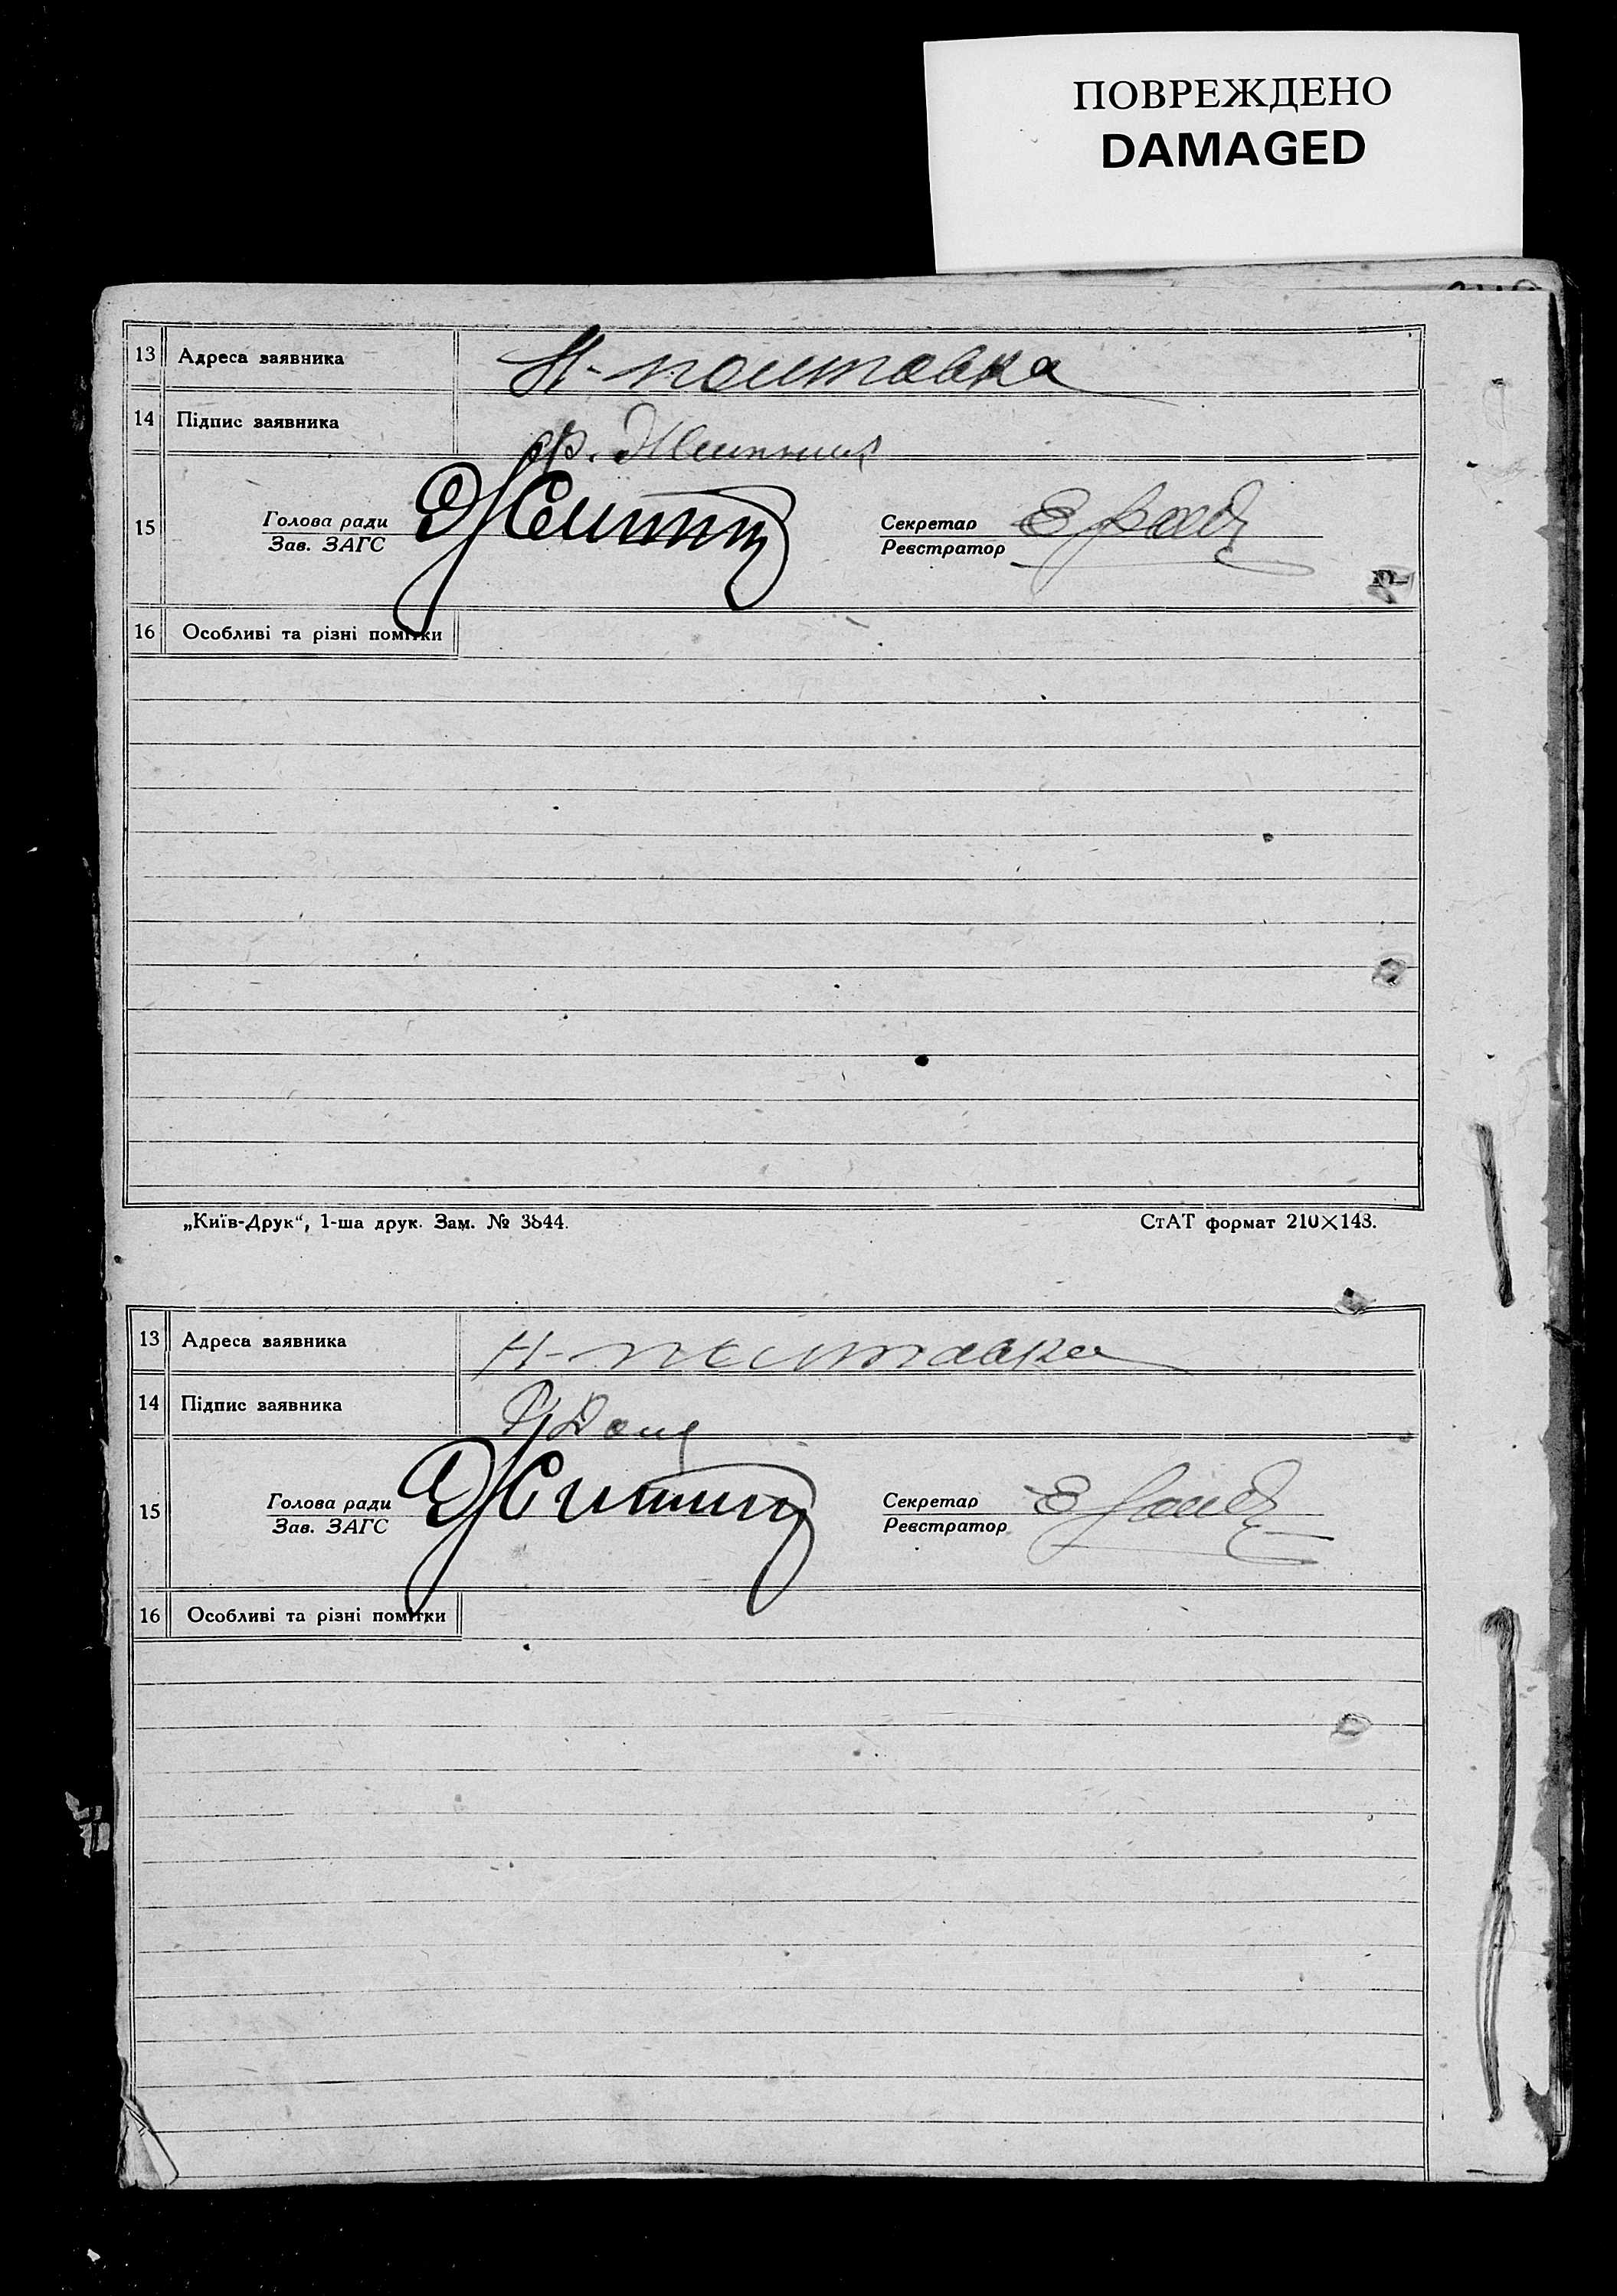 ПОВРЕЖДЕНО
DAMAGED
13 Адреса заявника Н-полтавка
14 Підпис заявника
15 Голова ради Секретар
Зав. ЗАГС Реєстратор
16 Особливі та різні помітки
„Київ-Друк“, 1-ша друк. Зам. № 3844. СтАТ формат 210×148.
13 Адреса заявника Н-полтавка
14 Підпис заявника
15 Голова ради Секретар
Зав. ЗАГС Реєстратор
16 Особливі та різні помітки